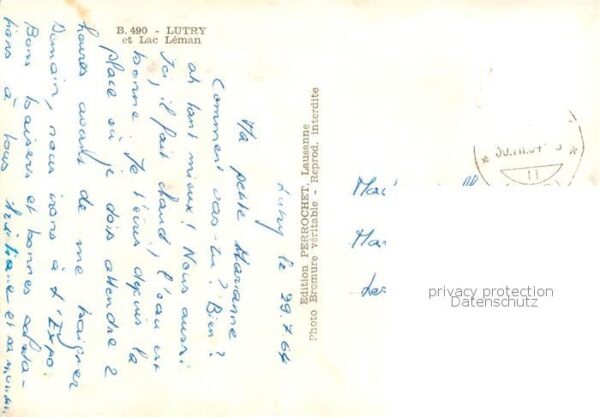 B. 490 - LUTRY
et Lac Léman
Lutry le 29.7.64
Ma petite Marianne
Comment vas-tu? Bien?
et tant mieux! Nous aussi
Ici, il fait chaud, l'eau est
bonne. Je t'écris depuis la
place où je dois attendre 2
heures avant de me baigner
Demain, nous irons à l'Expo.
Bons baisers et bonnes saluta-
tions à tous
et sa maman
Edition PERROCHET, Lausanne
Photo Bromure véritable - Reprod. interdite
privacy protection
Datenschutz